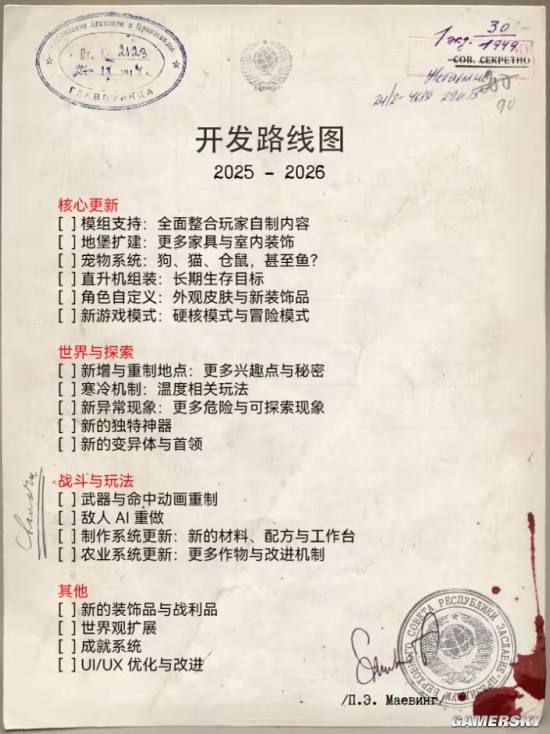 30
1 экз.
1949.
СОВ. СЕКРЕТНО
ГЛАВПУРККА
24/2-4619
90
开发路线图
2025 - 2026
核心更新
[ ] 模组支持：全面整合玩家自制内容
[ ] 地堡扩建：更多家具与室内装饰
[ ] 宠物系统：狗、猫、仓鼠，甚至鱼？
[ ] 直升机组装：长期生存目标
[ ] 角色自定义：外观皮肤与新装饰品
[ ] 新游戏模式：硬核模式与冒险模式
世界与探索
[ ] 新增与重制地点：更多兴趣点与秘密
[ ] 寒冷机制：温度相关玩法
[ ] 新异常现象：更多危险与可探索现象
[ ] 新的独特神器
[ ] 新的变异体与首领
战斗与玩法
[ ] 武器与命中动画重制
[ ] 敌人 AI 重做
[ ] 制作系统更新：新的材料、配方与工作台
[ ] 农业系统更新：更多作物与改进机制
其他
[ ] 新的装饰品与战利品
[ ] 世界观扩展
[ ] 成就系统
[ ] UI/UX 优化与改进
/П.Э. Маевинг/
GAMERSKY